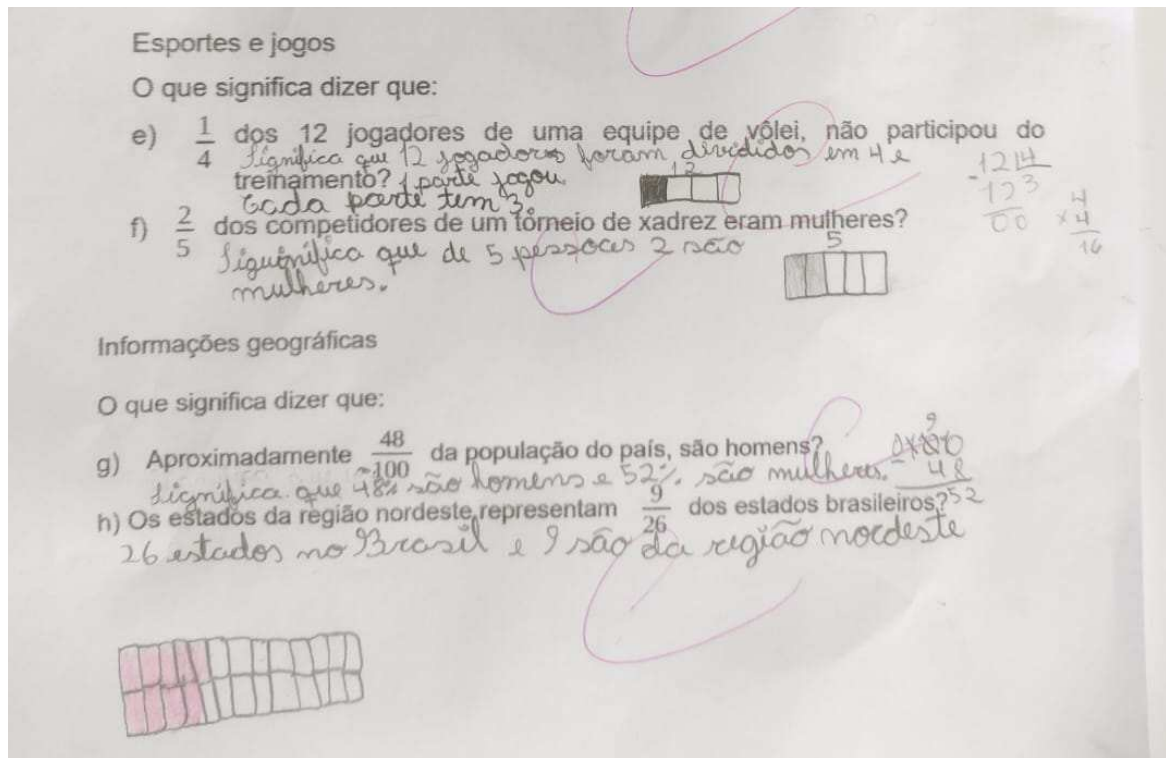 Esportes e jogos
O que significa dizer que:
e) 1/4 dos 12 jogadores de uma equipe de vôlei, não participou do
Significa que 12 jogadores foram divididos em 4 e
treinamento? 1 parte jogou
12
Cada parte tem 3.
f) 2/5 dos competidores de um torneio de xadrez eram mulheres?
Siguinifica que de 5 pessoas 2 são
mulheres.
5
-12 4
12 3
00
4
x 4
16
Informações geográficas
O que significa dizer que:
g) Aproximadamente 48/100 da população do país, são homens?
Significa que 48% são homens e 52% são mulheres.
48
52
h) Os estados da região nordeste, representam 9/26 dos estados brasileiros?
26 estados no Brasil e 9 são da região nordeste